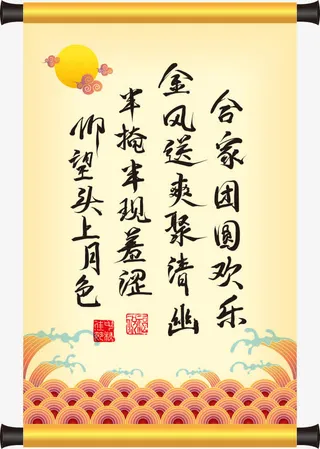 合家团圆欢乐
金风送爽聚清幽
半掩半现羞涩
仰望头上月色